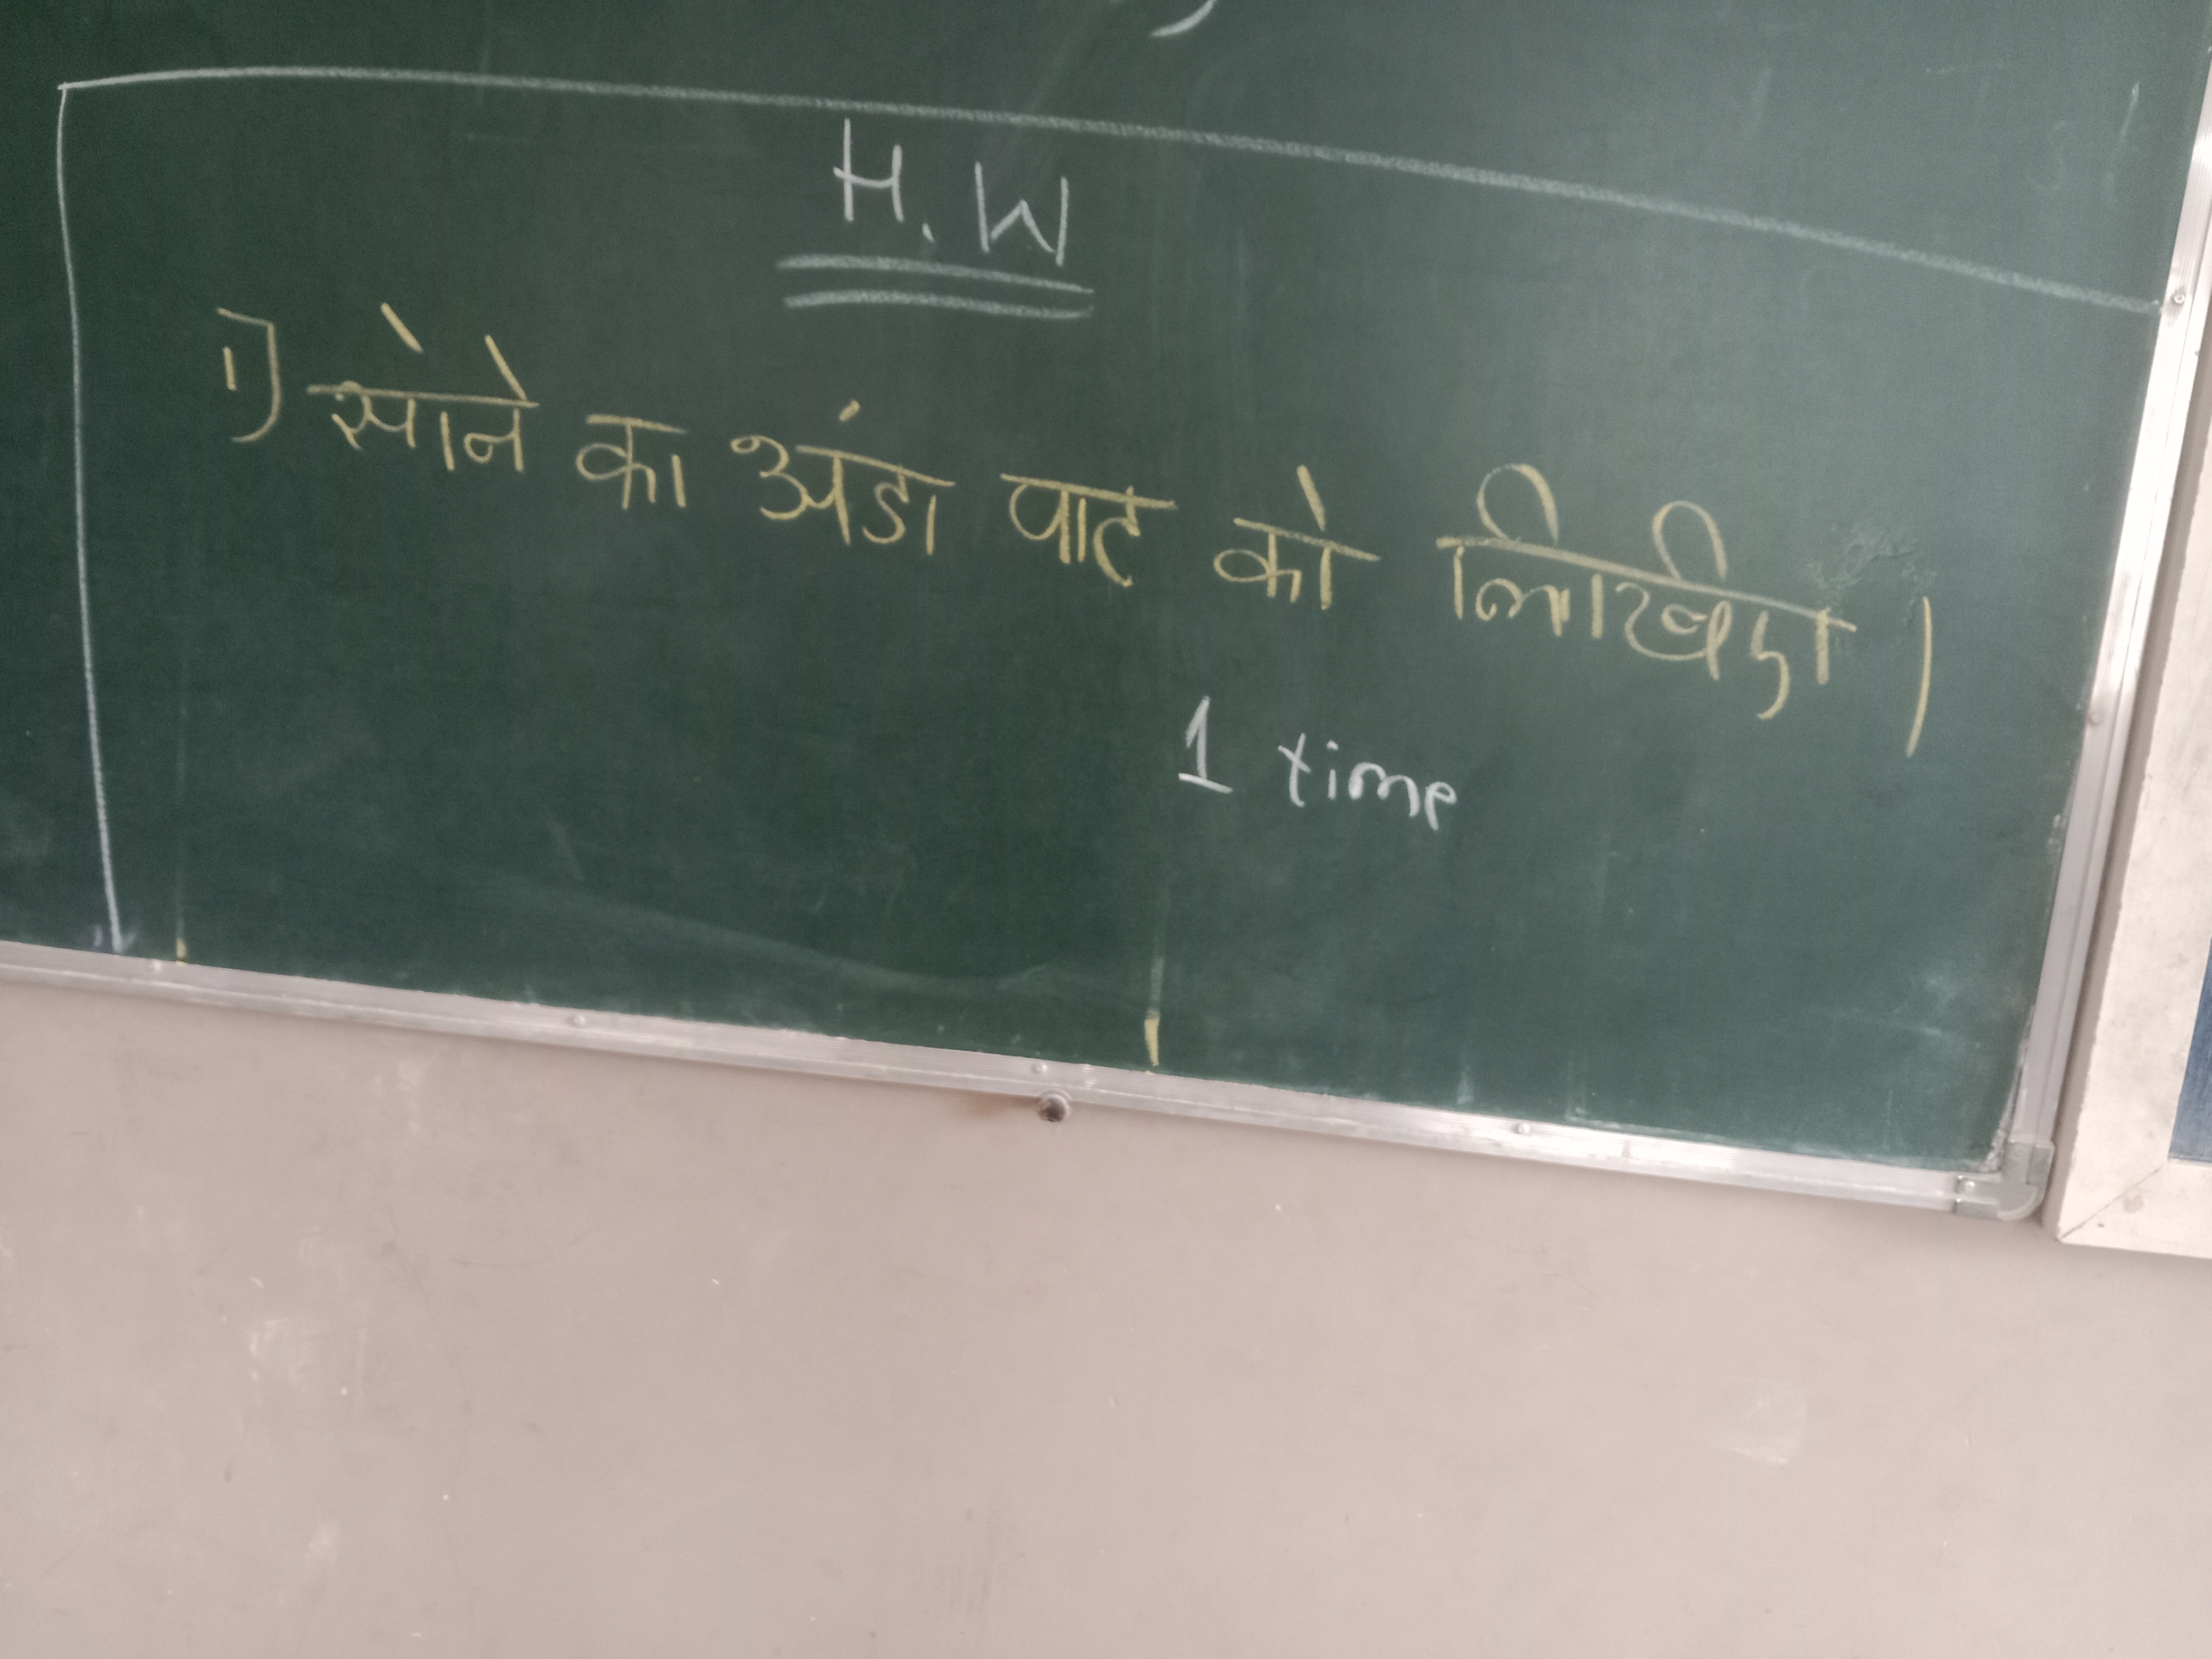 H.W
1) सोने का अंडा पाट को लिखिए।
1 time